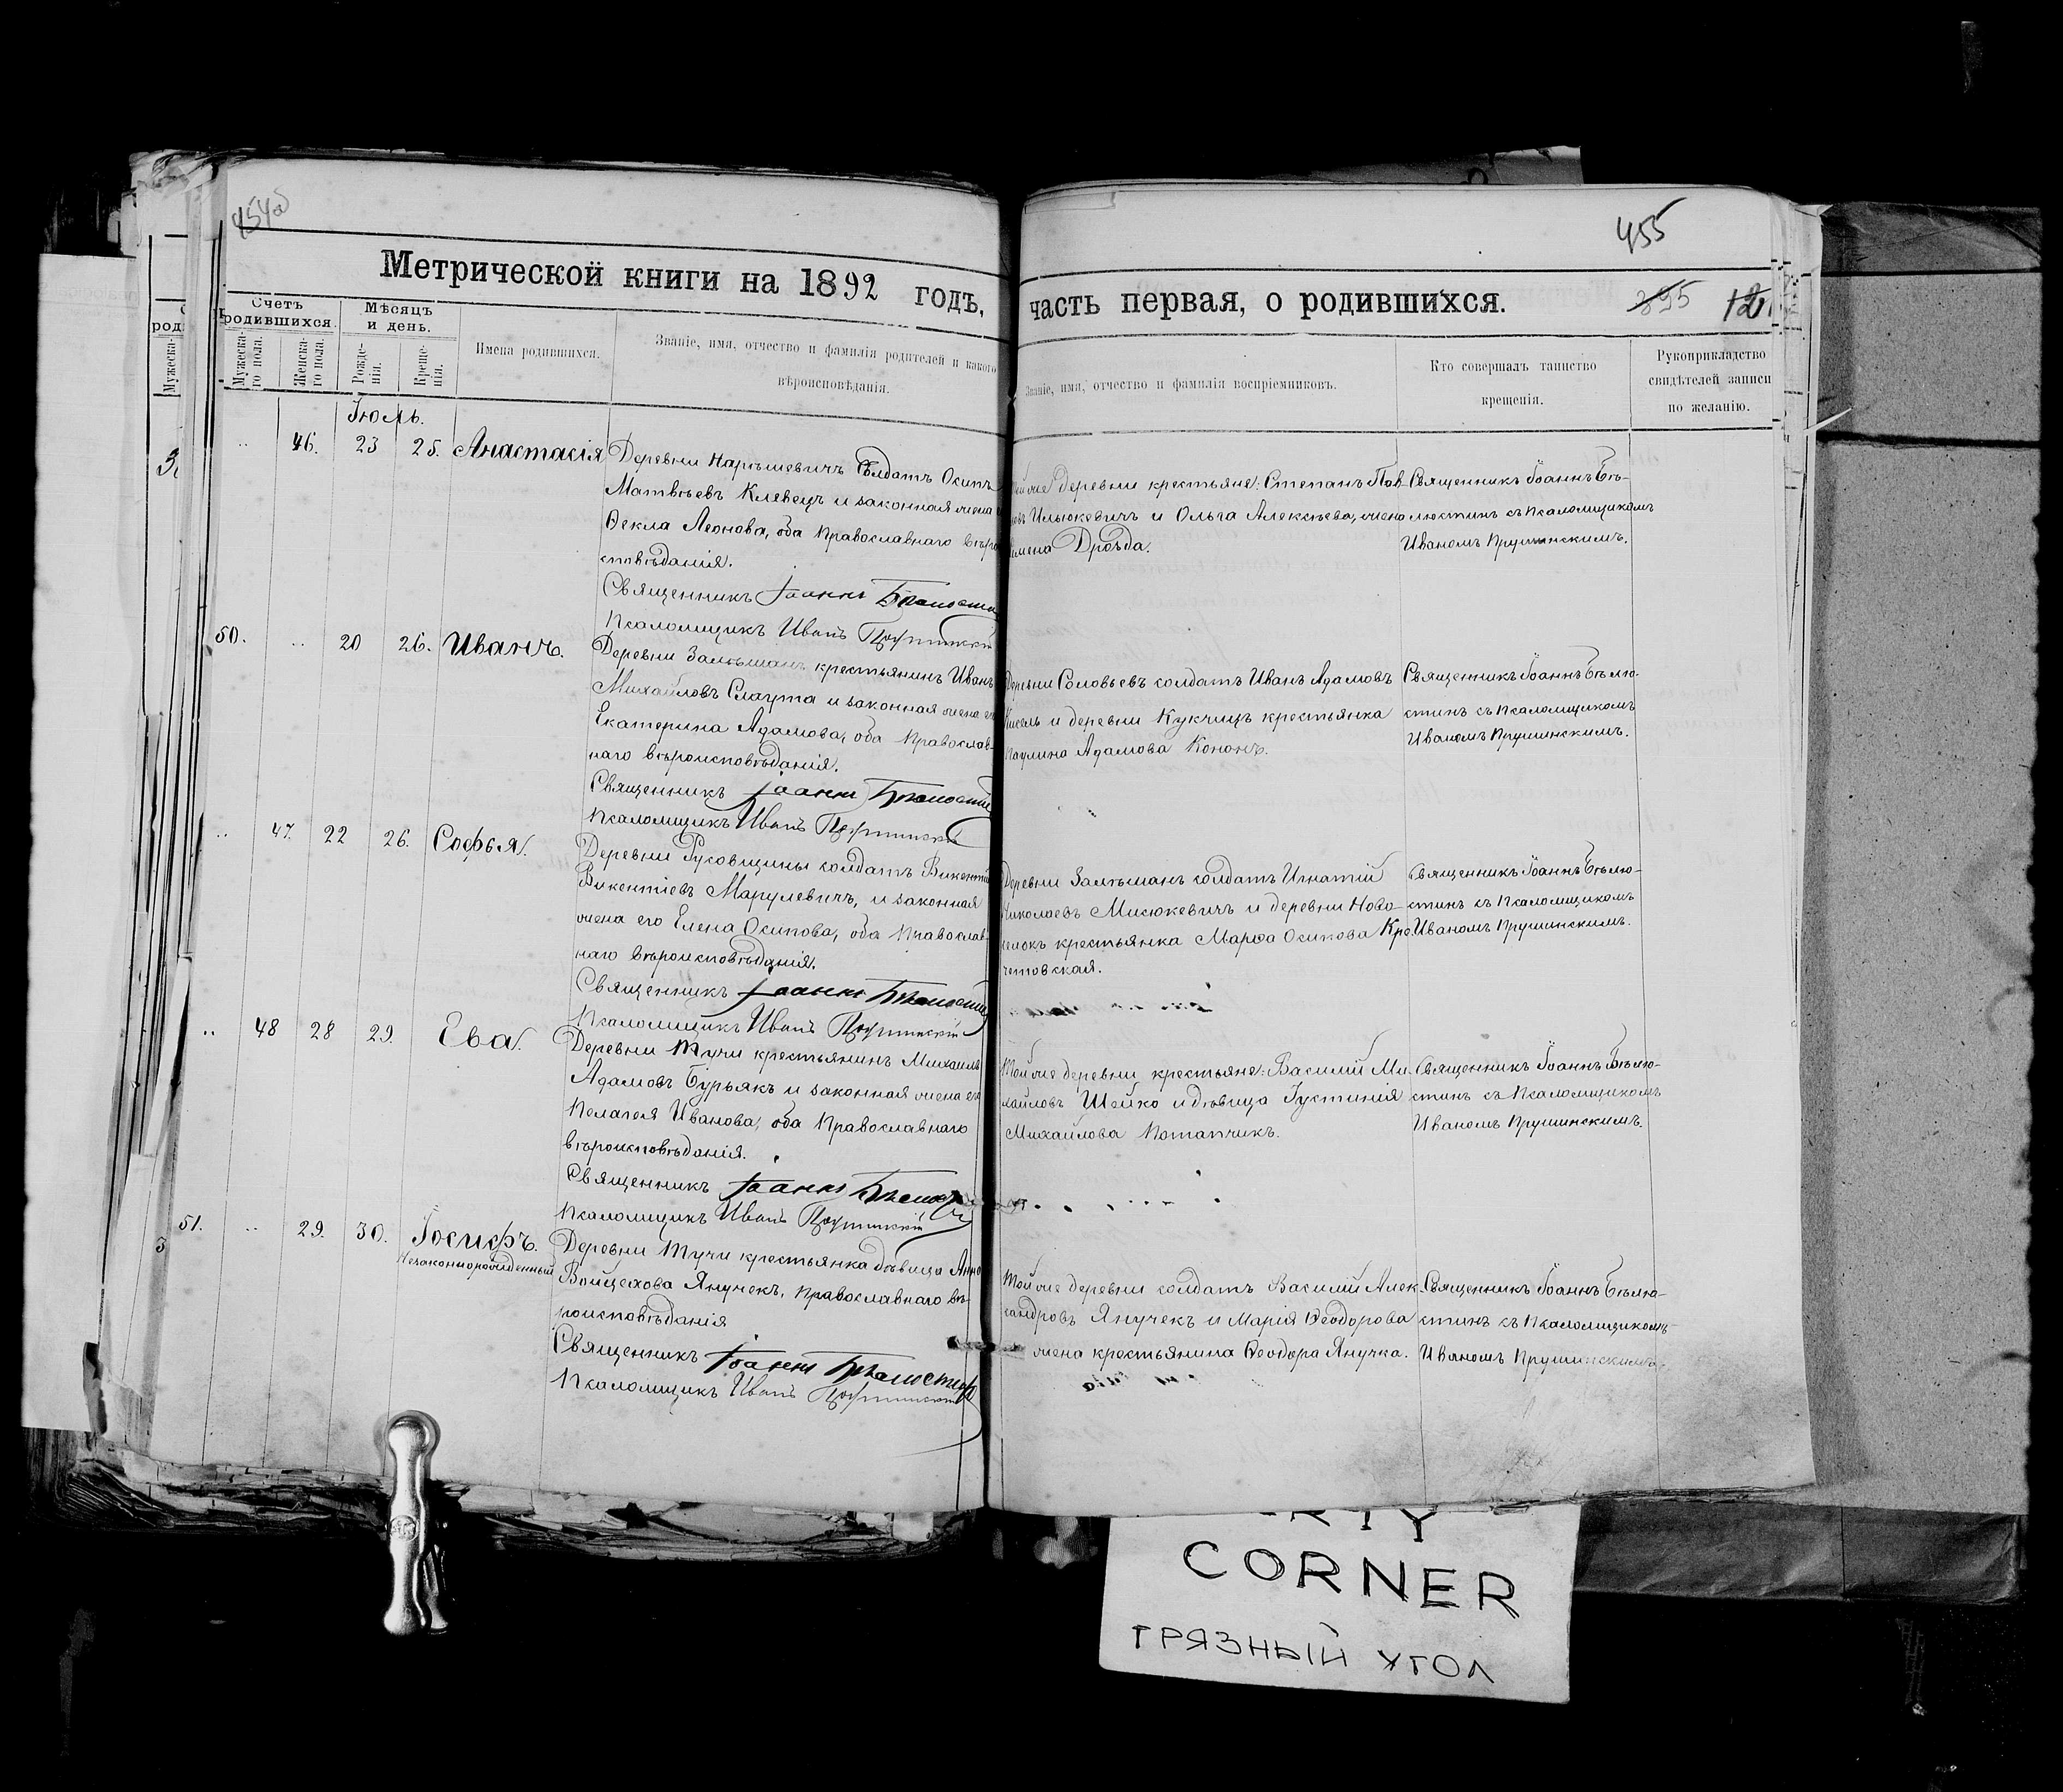 454об
455
Метрической книги на 1892 годъ,
часть первая, о родившихся.
395
Счетъ родившихся.
Мѣсяцъ и день.
Мужеска-го пола.
Женска-го пола.
Рожде-нія.
Креще-нія.
Имена родившихся.
Званіе, имя, отчество и фамилія родителей и какого
вѣроисповѣданія.
Званіе, имя, отчество и фамилія воспріемниковъ.
Кто совершалъ таинство
крещенія.
Рукоприкладство
свидѣтелей записи
по желанію.
Іюль.
46. 23 25. Анастасія
Деревни Солдатъ Осипъ
Матвѣевъ Клевецъ и законная жена
Ѳекла Леонова, оба православнаго вѣро
споведанія.
Священникъ Іоаннъ
Псаломщикъ Иванъ
же деревни крестьяне: Степанъ Пав
Ильюкевичъ и Ольга Алексѣева, жена
Дрозда.
Священникъ Іоаннъ Бѣ-
люстинъ съ псаломщикомъ
Иваномъ Прушинскимъ.
50. 20 26. Иванъ.
Деревни Залѣшанъ крестьянинъ Иванъ
Михайловъ Слаута и законная жена
Екатерина Адамова, оба православ-
наго вѣроисповѣданія.
Священникъ Іоаннъ
Псаломщикъ Иванъ
Деревни Соловьевъ солдатъ Иванъ Адамовъ
Кисель и деревни Кукчицъ крестьянка
Паулина Адамова Кононъ.
Священникъ Іоаннъ Бѣлю-
стинъ съ псаломщикомъ
Иваномъ Прушинскимъ.
47. 22 26. Софья.
Деревни солдатъ
Викентіевъ Марулевичъ, и законная
жена его Елена Осипова, оба православ-
наго вѣроисповѣданія.
Священникъ Іоаннъ
Псаломщикъ Иванъ
Деревни Залѣшанъ солдатъ Игнатій
Николаевъ Мисюкевичъ и деревни Ново-
крестьянка Марѳа Осипова Кре
четовская.
Священникъ Іоаннъ Бѣлю-
стинъ съ псаломщикомъ
Иваномъ Прушинскимъ.
48 28 29. Ева.
Деревни Тучи крестьянинъ Михаилъ
Адамовъ Бурьякъ и законная жена его
Пелагея Иванова, оба православнаго
вѣроисповѣданія.
Священникъ Іоаннъ
Псаломщикъ Иванъ
Той же деревни крестьяне: Василій Ми-
хайловъ Шейко и дѣвица Іустинія
Михайлова Потапчикъ.
Священникъ Іоаннъ Бѣлю-
стинъ съ псаломщикомъ
Иваномъ Прушинскимъ.
51. 29. 30. Іосифъ.
Незаконнорожденный
Деревни Тучи крестьянка дѣвица Анна
Войцехова Янучекъ, православнаго вѣ-
роисповѣданія
Священникъ Іоаннъ Бѣлюстинъ
Псаломщикъ Иванъ
Той же деревни солдатъ Василій Алек-
сандровъ Янучекъ и Марія Ѳеодорова
жена крестьянина Ѳеодора Янучка.
Священникъ Іоаннъ Бѣлю-
стинъ съ псаломщикомъ
Иваномъ Прушинскимъ.
CORNER
ГРЯЗНЫЙ УГОЛ